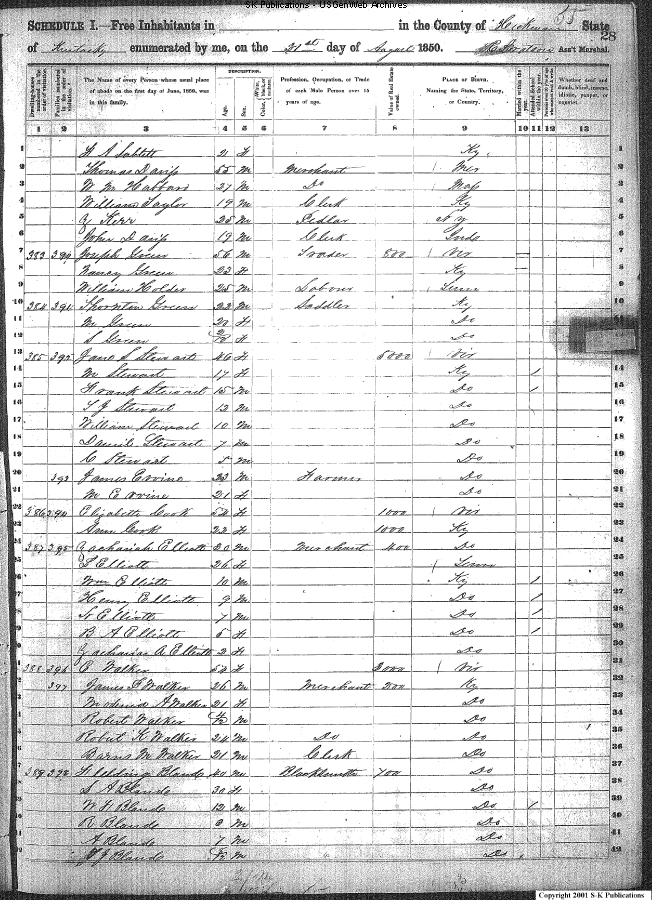 S-K Publications - USGenWeb Archives
55
28
SCHEDULE I.—Free Inhabitants in in the County of Hickman State
of Kentucky enumerated by me, on the 31st day of August 1850. Ass't Marshal.
Dwelling-houses numbered in the order of visitation. Families numbered in the order of visitation. The Name of every Person whose usual place of abode on the first day of June, 1850, was in this family. DESCRIPTION. Age. Sex. Color, White, black, or mulatto. Profession, Occupation, or Trade of each Male Person over 15 years of age. Value of Real Estate owned. PLACE OF BIRTH. Naming the State, Territory, or Country. Married within the year. Attended School within the year. Whether deaf and dumb, blind, insane, idiotic, pauper, or convict.
1 2 3 4 5 6 7 8 9 10 11 12 13
1 Sublett 21 F Ky 1
2 Thomas Davis 55 M Merchant 2
3 W M Habbard 27 M Do Mass 3
4 William Taylor 19 M Clerk Ky 4
5 Kerr 25 M Pedlar N Y 5
6 John Davis 19 M Clerk 6
7 383 390 Joseph Green 56 M Trader 800 Vir 7
8 Nancy Green 23 F Ky 8
9 William Holder 25 M Labour Tenn 9
10 384 391 Thornton Green 22 M Saddler Ky
11 M Green 20 F Do
12 S Green F Do
13 385 392 Jane S Stewart 46 F 5000 Vir
14 M Stewart 17 F Ky 1 14
15 Frank Stewart 15 M Do 1 15
16 T J Stewart 12 M Do 16
17 William Stewart 10 M Do 17
18 Daniel Stewart 7 M Do 18
19 C Stewart 5 M Do 19
20 393 James Ervine 23 M Farmer Do 20
21 M Ervine 21 F Do 21
22 386 394 Elizabeth Cook 52 F 1000 Vir 22
23 Ann Cook 22 F 1000 Ky 23
24 387 395 Zachariah Elliott M Merchant 400 Do 24
25 Elliott 26 F Tenn 25
26 Wm Elliott 10 M Ky 1 26
27 Henry Elliott 9 M Do 1 27
28 Elliott 7 M Do 1 28
29 B A Elliott 5 F Do 1 29
30 Zacharias A Elliott 2 F Do 30
31 388 396 E Walker 52 F 2000 Vir 31
32 397 James F Walker 26 M Merchant 200 Ky 32
33 A Walker 21 F Do 33
34 Robert Walker M Do 34
35 Robert K Walker 24 M Do Do 35
36 Barns M Walker 21 M Clerk Do 36
37 389 398 Fielding Blands 40 M Blacksmith 700 Do 37
38 S A Blands 30 F Do 38
39 W F Blands 12 M Do 1 39
40 R Blands 9 M Do 40
41 A Blands 7 M Do 41
42 J Blands M Do 42
Copyright 2001 S-K Publications